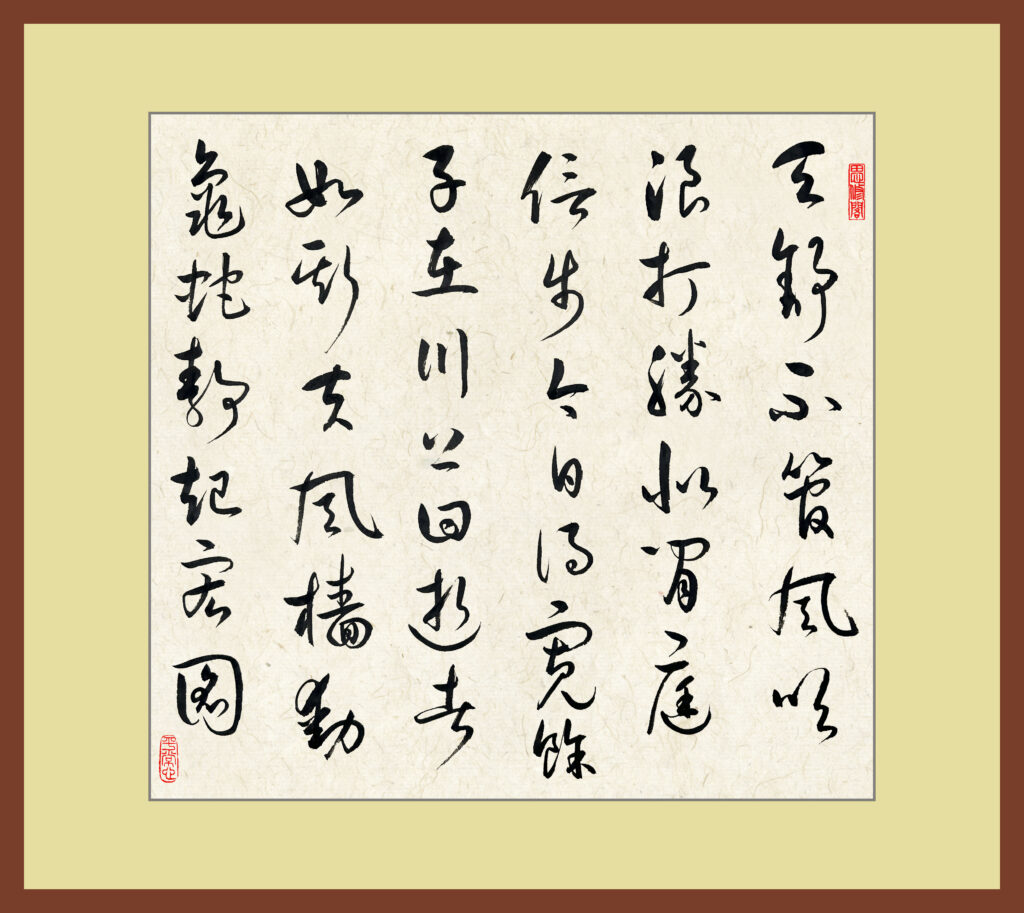 天舒不管風吹
浪打勝似閒庭
信步今日得寬餘
子在川上曰逝者
如斯夫風檣動
龜蛇靜起宏圖
平常心